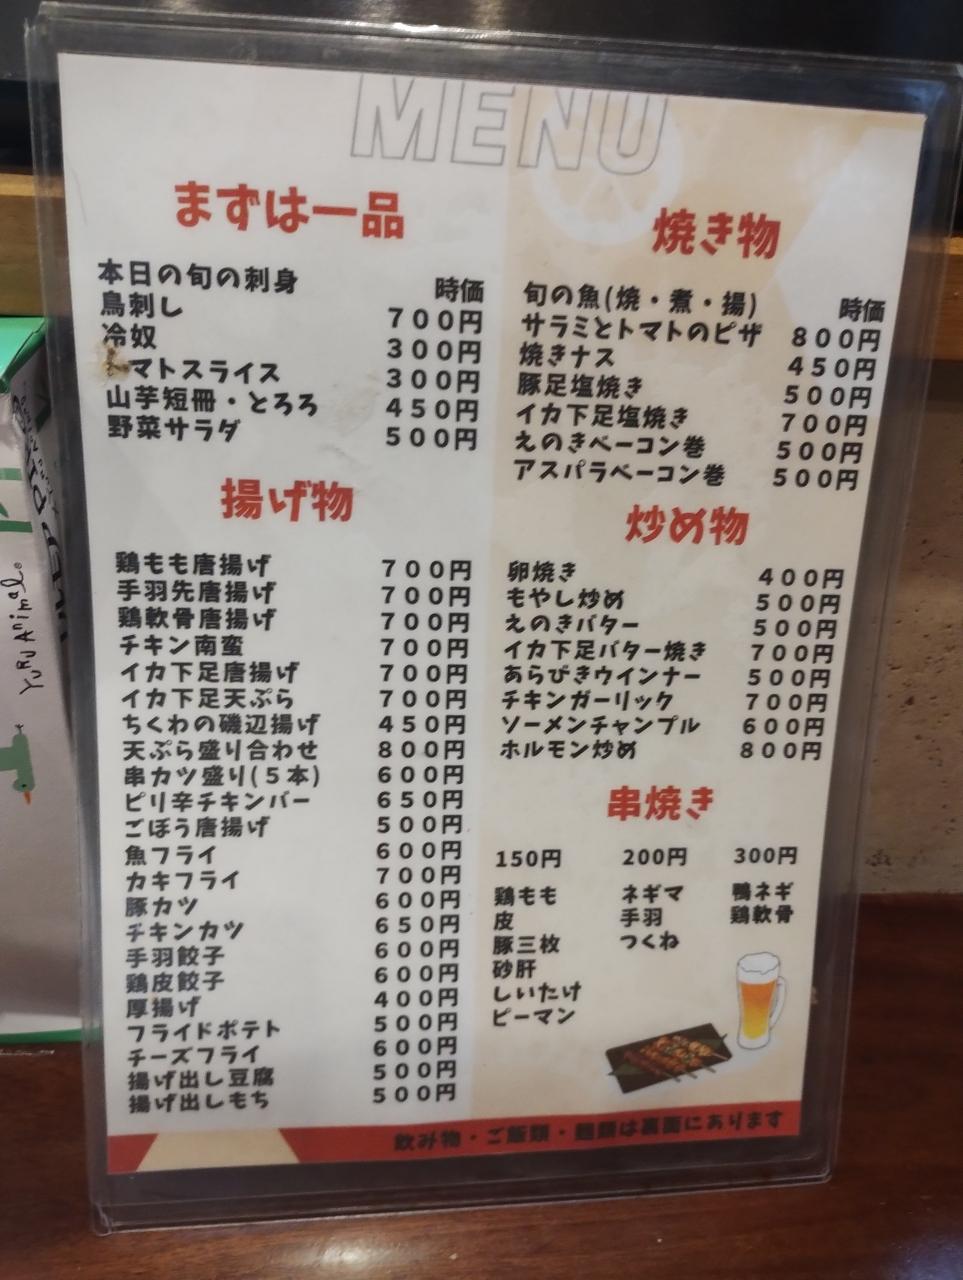 MENU
まずは一品
本日の旬の刺身 時価
鳥刺し 700円
冷奴 300円
マトスライス 300円
山芋短冊・とろろ 450円
野菜サラダ 500円
揚げ物
鶏もも唐揚げ 700円
手羽先唐揚げ 700円
鶏軟骨唐揚げ 700円
チキン南蛮 700円
イカ下足唐揚げ 700円
イカ下足天ぷら 700円
ちくわの磯辺揚げ 450円
天ぷら盛り合わせ 800円
串カツ盛り(5本) 600円
ピリ辛チキンバー 650円
ごぼう唐揚げ 500円
魚フライ 600円
カキフライ 700円
豚カツ 600円
チキンカツ 650円
手羽餃子 600円
鶏皮餃子 600円
厚揚げ 400円
フライドポテト 500円
チーズフライ 600円
揚げ出し豆腐 500円
揚げ出しもち 500円
焼き物
旬の魚(焼・煮・揚) 時価
サラミとトマトのピザ 800円
焼きナス 450円
豚足塩焼き 500円
イカ下足塩焼き 700円
えのきベーコン巻 500円
アスパラベーコン巻 500円
炒め物
卵焼き 400円
もやし炒め 500円
えのきバター 500円
イカ下足バター焼き 700円
あらびきウインナー 500円
チキンガーリック 700円
ソーメンチャンプル 600円
ホルモン炒め 800円
串焼き
150円 200円 300円
鶏もも ネギマ 鴨ネギ
皮 手羽 鶏軟骨
豚三枚 つくね
砂肝
しいたけ
ピーマン
飲み物・ご飯類・麺類は裏面にあります
YURU Animal.